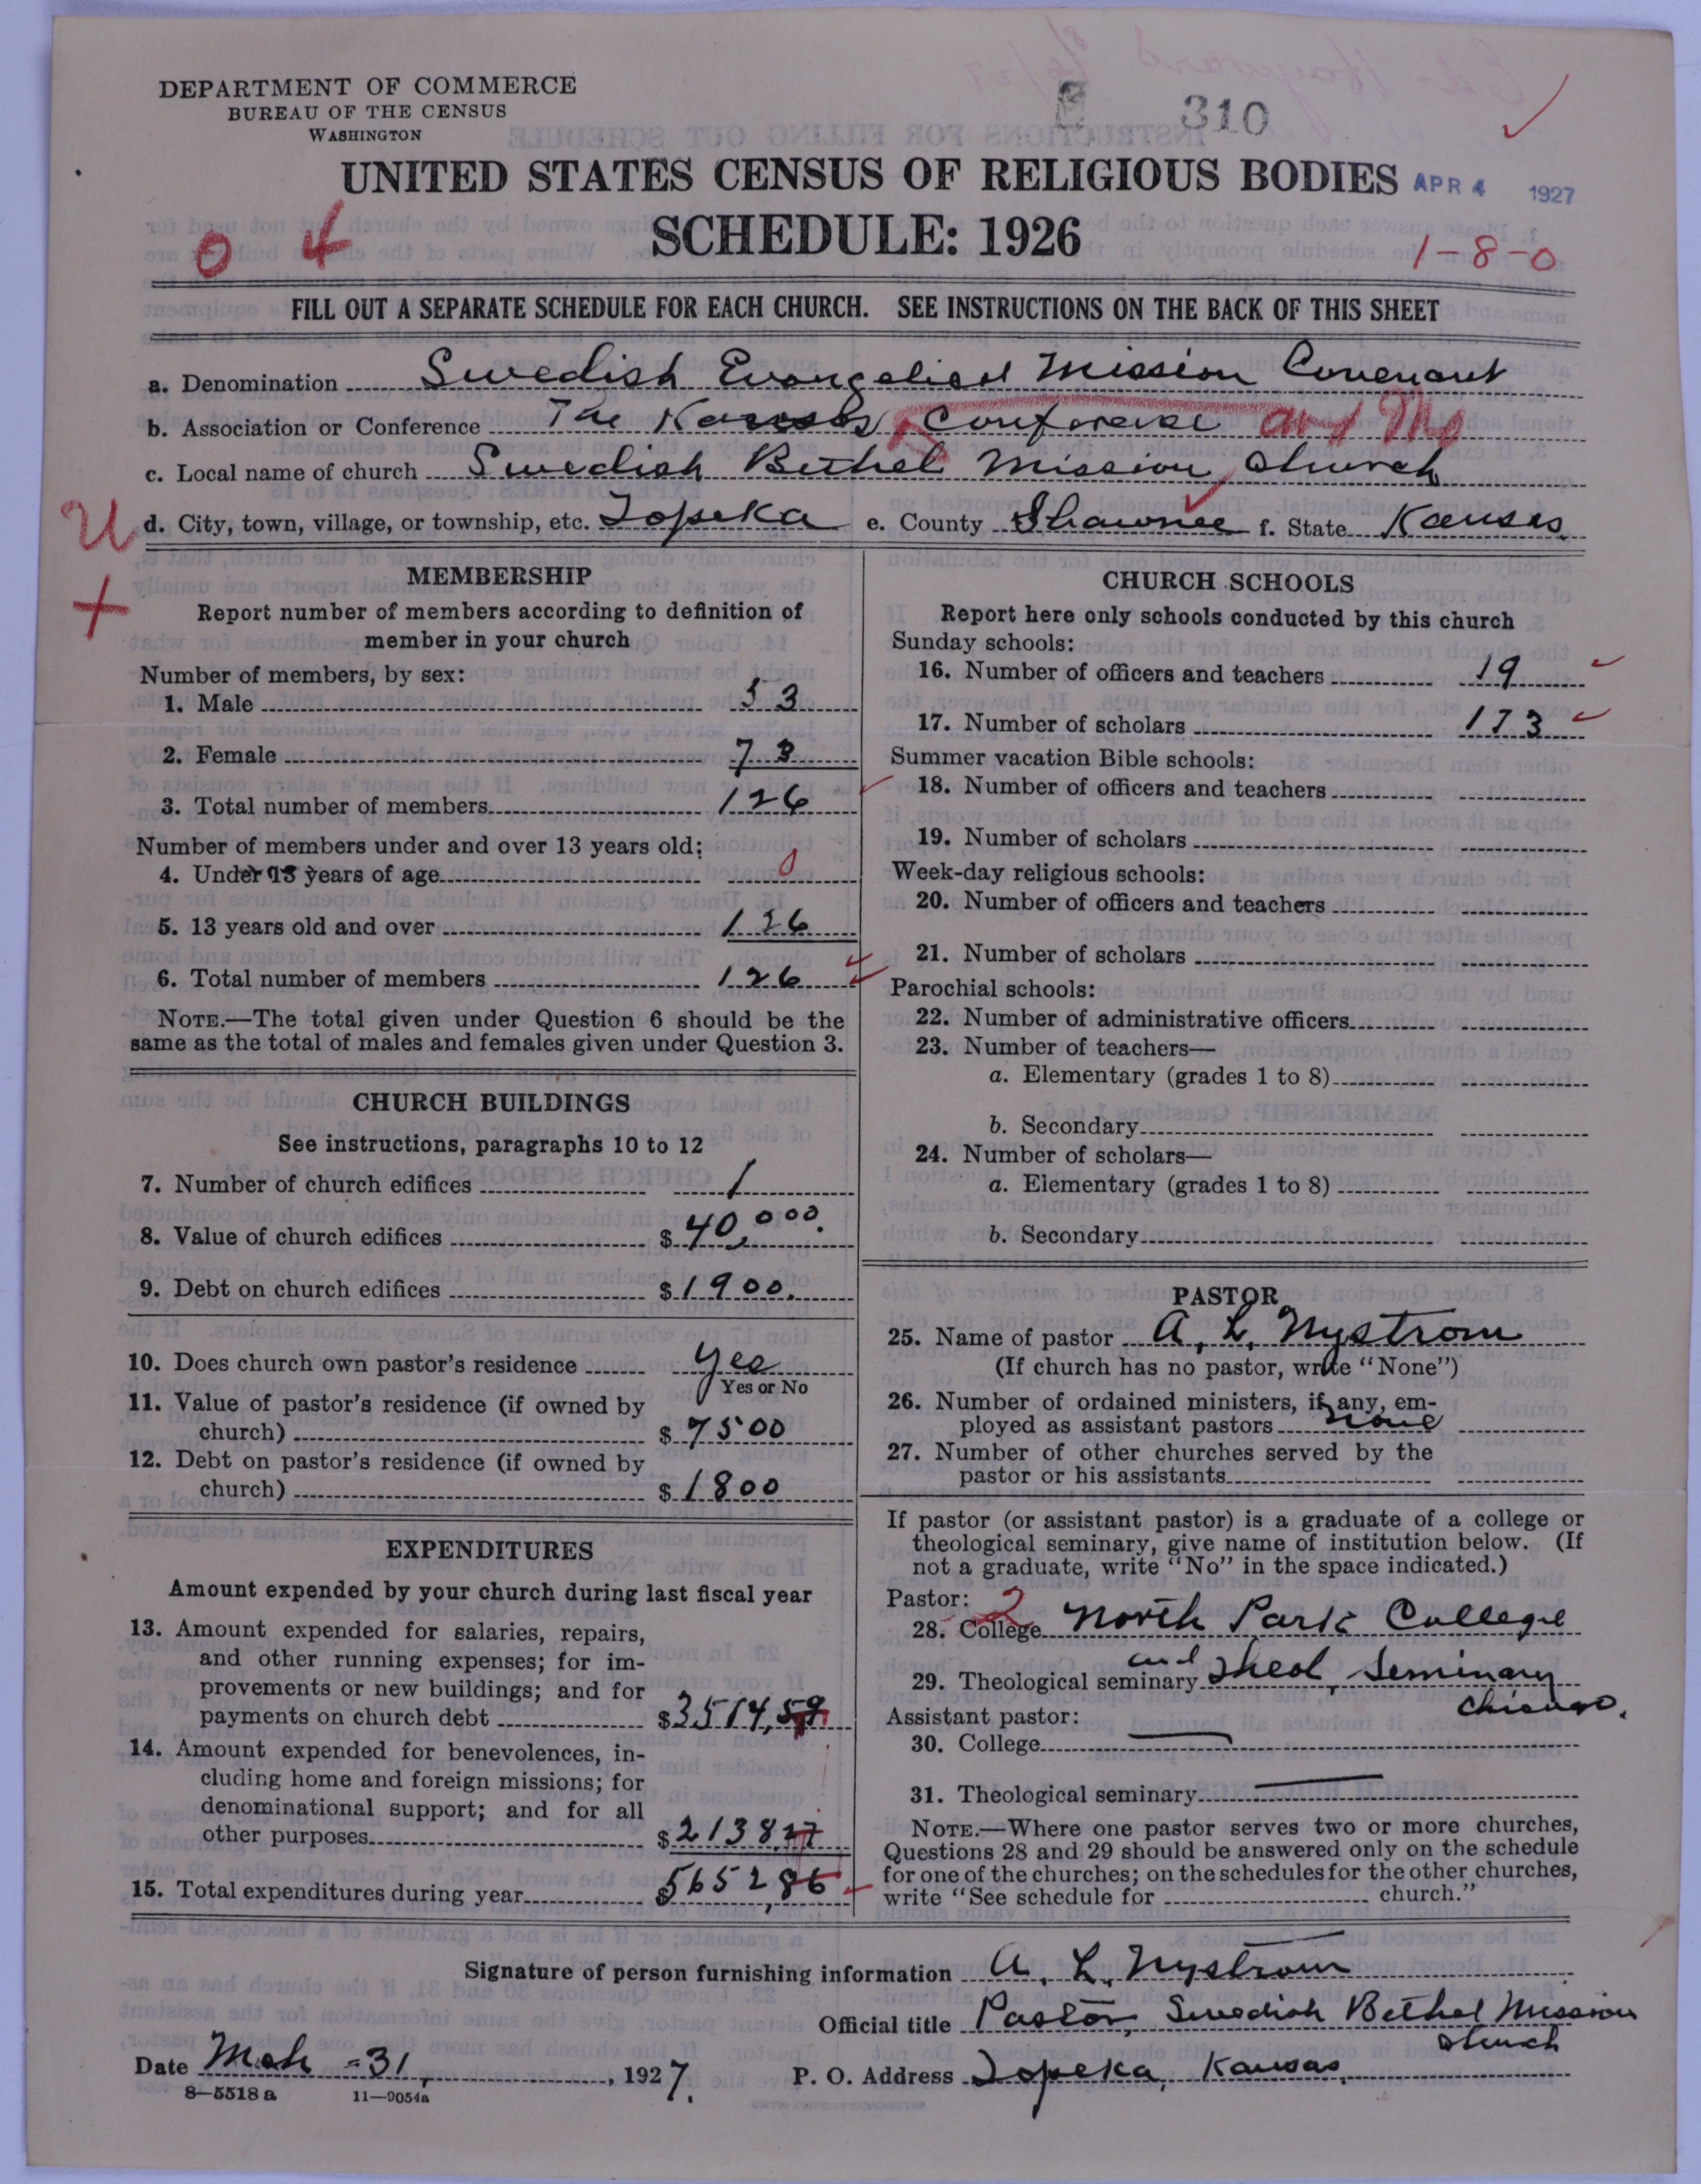 DEPARTMENT OF COMMERCE
BUREAU OF THE CENSUS
WASHINGTON
310
UNITED STATES CENSUS OF RELIGIOUS BODIES
APR 4 1927
SCHEDULE: 1926
0 4
1-8-0
FILL OUT A SEPARATE SCHEDULE FOR EACH CHURCH. SEE INSTRUCTIONS ON THE BACK OF THIS SHEET
a. Denomination Swedish Evangelical Mission Covenant
b. Association or Conference The Kansas Conference and Mo
c. Local name of church Swedish Bethel Mission Church
U d. City, town, village, or township, etc. Topeka e. County Shawnee f. State Kansas
+
MEMBERSHIP
Report number of members according to definition of
member in your church
Number of members, by sex:
1. Male 53
2. Female 73
3. Total number of members 126
Number of members under and over 13 years old:
4. Under 13 years of age 0
5. 13 years old and over 126
6. Total number of members 126
NOTE.—The total given under Question 6 should be the
same as the total of males and females given under Question 3.
CHURCH BUILDINGS
See instructions, paragraphs 10 to 12
7. Number of church edifices 1
8. Value of church edifices $ 40,000.
9. Debt on church edifices $ 1900.
10. Does church own pastor's residence yes
Yes or No
11. Value of pastor's residence (if owned by
church) $ 7500
12. Debt on pastor's residence (if owned by
church) $ 1800
EXPENDITURES
Amount expended by your church during last fiscal year
13. Amount expended for salaries, repairs,
and other running expenses; for im-
provements or new buildings; and for
payments on church debt $3514,59
14. Amount expended for benevolences, in-
cluding home and foreign missions; for
denominational support; and for all
other purposes $213827
15. Total expenditures during year $5652,86
CHURCH SCHOOLS
Report here only schools conducted by this church
Sunday schools:
16. Number of officers and teachers 19
17. Number of scholars 173
Summer vacation Bible schools:
18. Number of officers and teachers
19. Number of scholars
Week-day religious schools:
20. Number of officers and teachers
21. Number of scholars
Parochial schools:
22. Number of administrative officers
23. Number of teachers—
a. Elementary (grades 1 to 8)
b. Secondary
24. Number of scholars—
a. Elementary (grades 1 to 8)
b. Secondary
PASTOR
25. Name of pastor A. L. Nystrom
(If church has no pastor, write "None")
26. Number of ordained ministers, if any, em-
ployed as assistant pastors none
27. Number of other churches served by the
pastor or his assistants
If pastor (or assistant pastor) is a graduate of a college or
theological seminary, give name of institution below. (If
not a graduate, write "No" in the space indicated.)
Pastor: 2
28. College North Park College
29. Theological seminary and Theol. Seminary
Chicago.
Assistant pastor:
30. College
31. Theological seminary
NOTE.—Where one pastor serves two or more churches,
Questions 28 and 29 should be answered only on the schedule
for one of the churches; on the schedules for the other churches,
write "See schedule for church."
Signature of person furnishing information A. L. Nystrom
Official title Pastor, Swedish Bethel Mission
Church
Date Mch - 31, 1927. P. O. Address Topeka, Kansas.
8—5518a 11—9054a